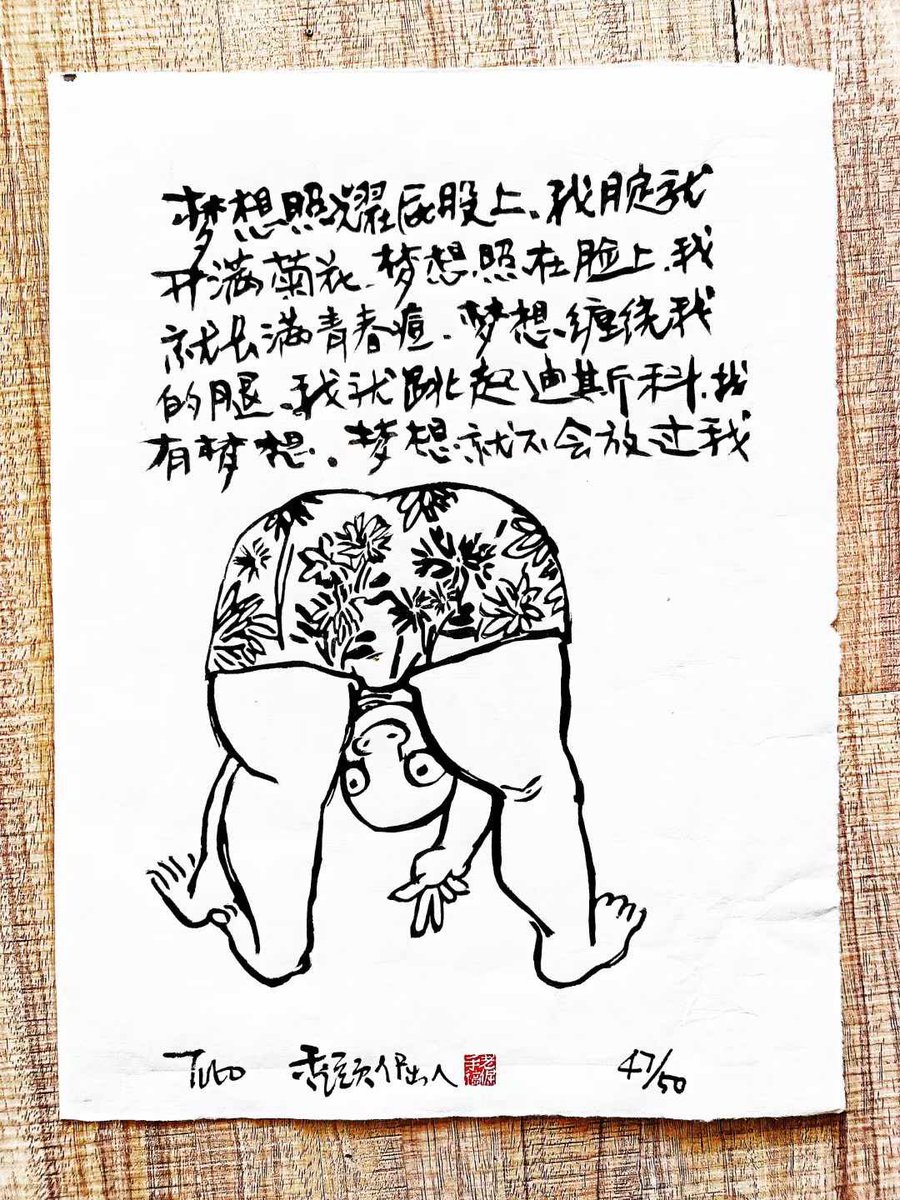 梦想照耀在屁股上、我腚就
开满菊花.梦想照在脸上.我
就长满青春痘.梦想缠绕我
的腿、我就跳起迪斯科.我
有梦想。梦想就不会放过我
秃头倔人
47/50